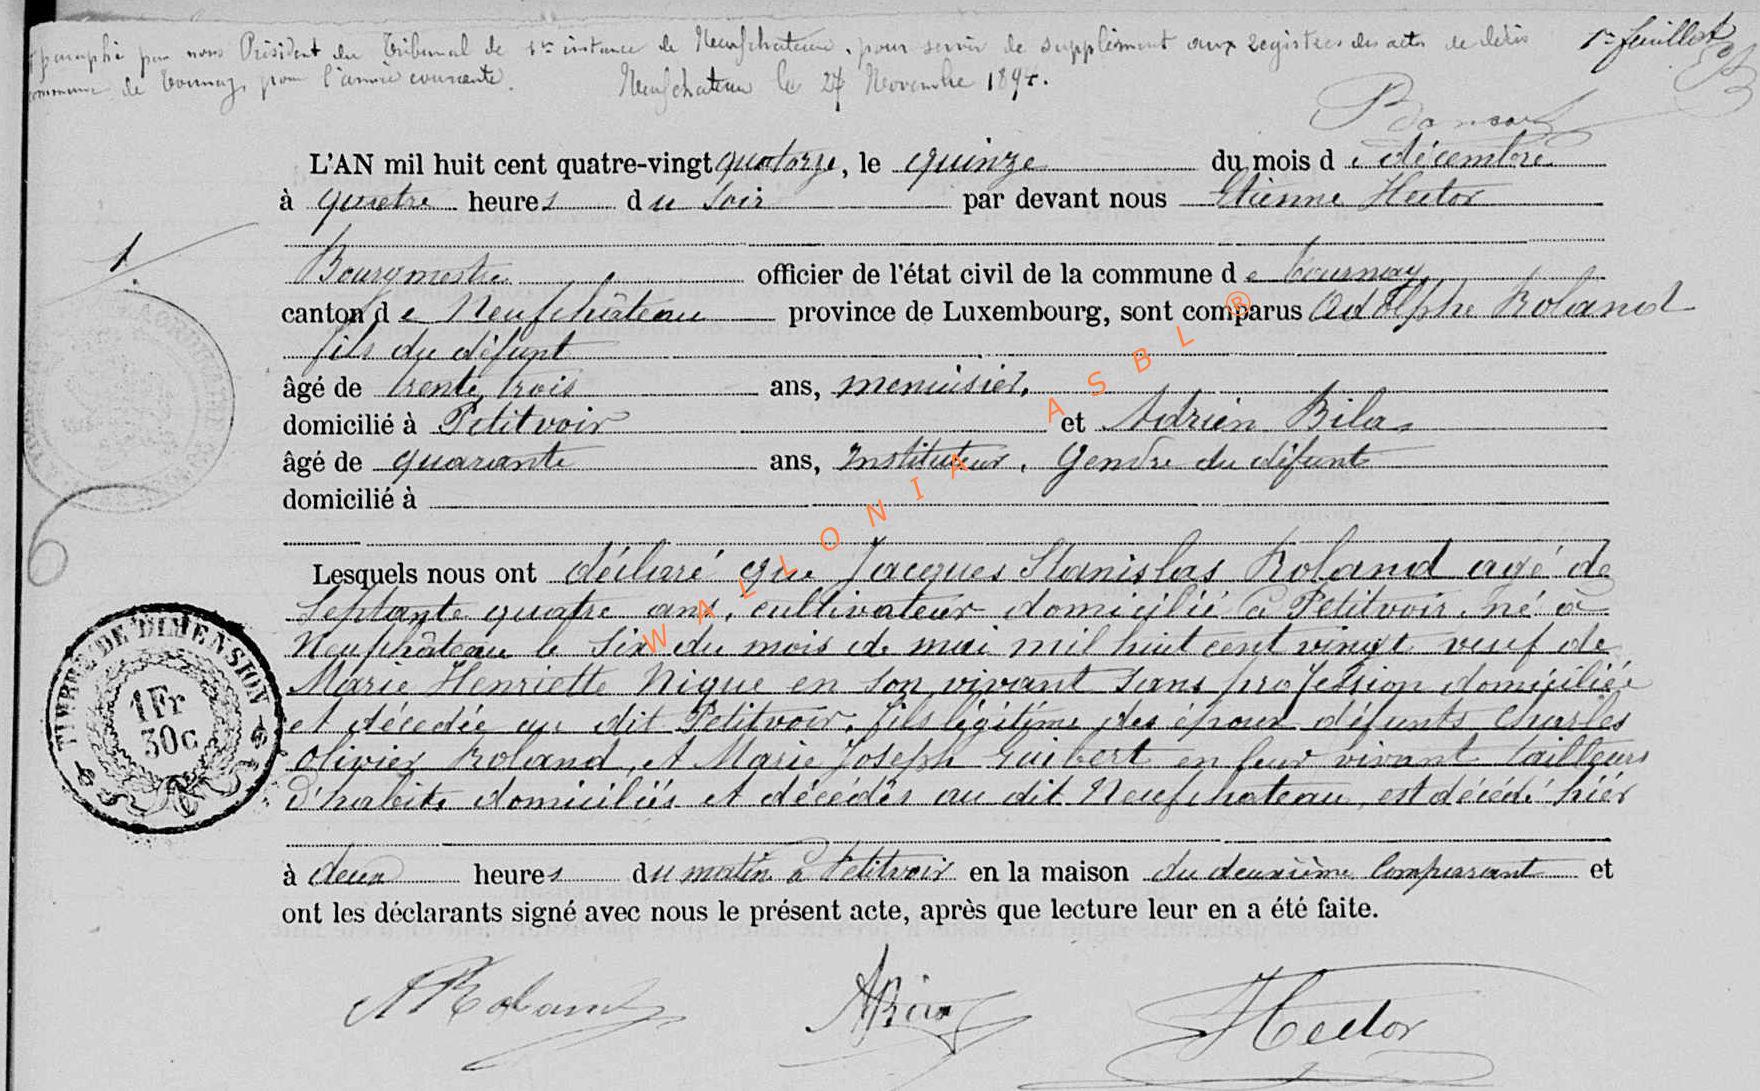 paraphé par nous Président du Tribunal de 1re instance de Neufchateau, pour servir de supplément aux registres des actes de décès
commune de Tournay, pour l'année courante. Neufchateau le 27 Novembre 1894.
1r feuillet
L'AN mil huit cent quatre-vingt quatorze, le quinze du mois de décembre
à quatre heures du soir par devant nous Etienne Hector
1
Bourgmestre officier de l'état civil de la commune de Tournay
canton de Neufchâteau province de Luxembourg, sont comparus Adolphe Roland
fils du défunt
âgé de trente trois ans, menuisier,
domicilié à Petitvoir et Adrien
âgé de quarante ans, Instituteur, Gendre du défunt
domicilié à
Lesquels nous ont déclaré que Jacques Stanislas Roland agé de
Septante quatre ans, cultivateur domicilié à Petitvoir, né à
Neufchâteau le six du mois de mai mil huit cent vingt veuf de
Marie Henriette Nique en son vivant sans profession domiciliée
et décedée au dit Petitvoir, fils légitime des époux défunts Charles
Olivier Roland, et Marie Joseph Guibert en leur vivant tailleurs
d'habits domiciliés et décédés au dit Neufchateau, est décédé hier
à deux heures du matin à Petitvoir en la maison du deuxième Comparant et
ont les déclarants signé avec nous le présent acte, après que lecture leur en a été faite.
TIMBRE DE DIMENSION
1Fr
30c
ARoland
Hector
WALLONIA ASBL ®